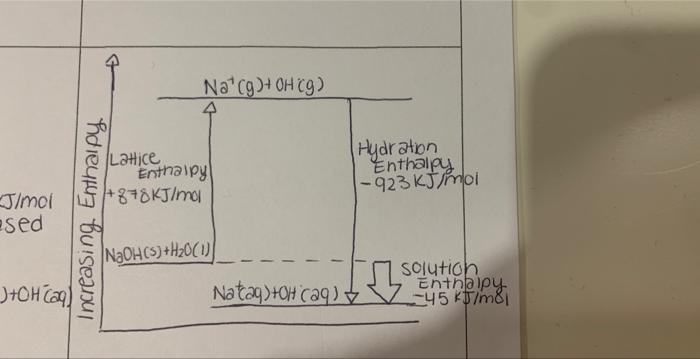 Na⁺(g)+OH⁻(g)
Lattice
Enthalpy
+878KJ/mol
Hydration
Enthalpy
-923 KJ/mol
KJ/mol
Increasing Enthalpy
NaOH(s)+H₂O(l)
solution
Enthalpy
-45 KJ/mol
)+OH⁻(aq)
Na⁺(aq)+OH⁻(aq)